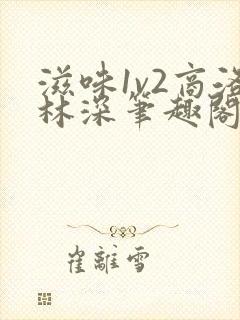 滋味1v2高洛
林深笔趣阁
崔離雪